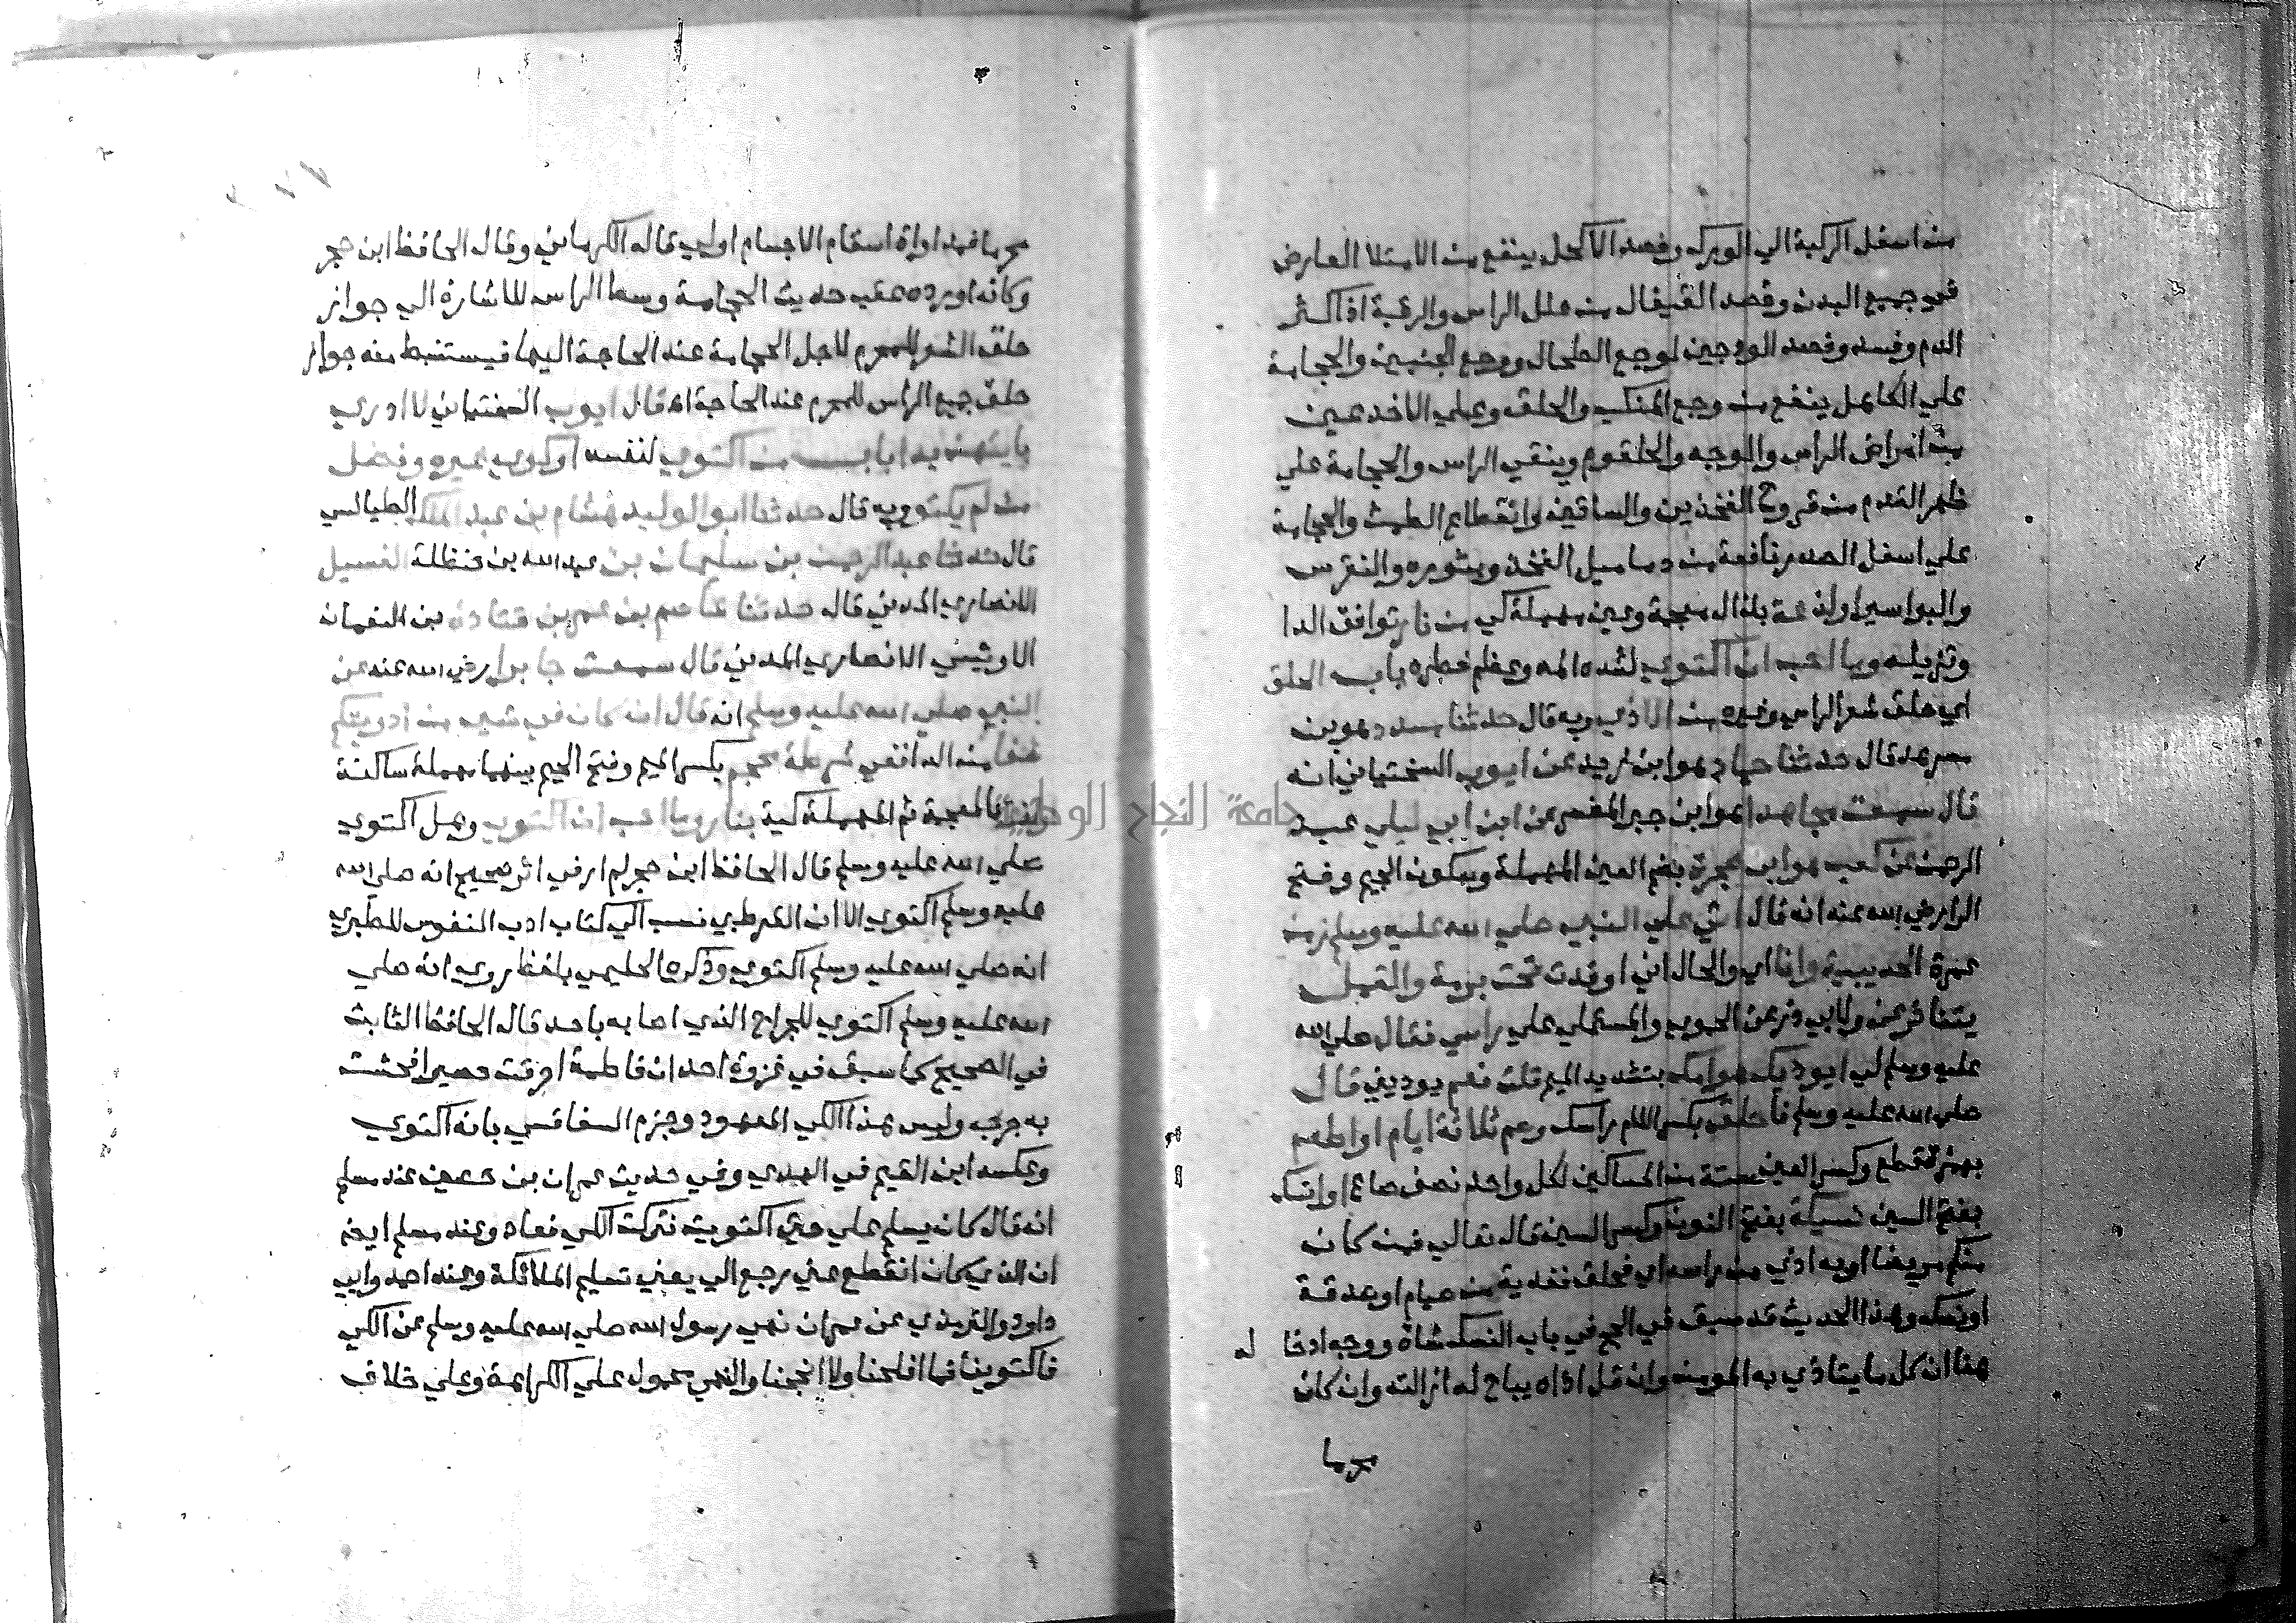 من اسفل الركبة الي الورك وفصد الاكحل ينفع من الامتلا العارض
في جميع البدن وفصد القيفال من علل الراس والرقبة اذا كثر
الدم وفسد وفصد الودجين لوجع الطحال ووجع الجنبين والحجامة
علي الكاهل ينفع من وجع المنكب والحلق وعلي الاخدعين
من امراض الراس والوجه والحلقوم وينقي الراس والحجامة علي
ظهر القدم من قروح الفخذين والساقين وانقطاع الطمث والحجامة
علي اسفل الصدر نافعة من دماميل الفخذ وبثوره والنقرس
والبواسير او لذعة بذال معجمة وعين مهملة كي من نار توافق الدا
وتزيله وما احب ان اكتوي لشدة المه وعظم خطره باب الحلق
اي حلق شعر الراس وغيره من الاذي وبه قال حدثنا مسدد هو بن
مسرهد قال حدثنا حماد هو ابن زيد عن ايوب السختياني انه
قال سمعت مجاهدا هو ابن جبر المفسر عن ابن ابي ليلي عبد
الرحمن عن كعب هو ابن عجرة بضم العين المهملة وسكون الجيم وفتح
الرا رضي الله عنه انه قال اتي علي النبي صلي الله عليه وسلم زمن
عمرة الحديبية وانا اي والحال اني اوقدت تحت برمة والقمل
يتناثر عن ولابي ذر عن الحموي والمستملي علي راسي فقال صلي الله
عليه وسلم لي ايوذيك هوامك بتشديد الميم قلت نعم يوذيني قال
صلي الله عليه وسلم فاحلق بكسر اللام راسك وصم ثلاثة ايام او اطعم
بهمزة قطع وكسر العين ستة من المساكين لكل واحد نصف صاع او انسك
بفتح السين نسيكة بفتح النون وكسر السين قال تعالي فمن كان
منكم مريضا او به اذي من راسه اي فحلق ففدية من صيام او صدقة
او نسك وهذا الحديث قد سبق في الحج في باب النسك شاة ووجه ادخاله
هنا ان كل ما يتاذي به المومن وان قل اذاه يباح له ازالته وان كان
محرما
محرما فمداواة اسقام الاجسام اولي قاله الكرماني وقال الحافظ ابن حجر
وكانه اورده عقب حديث الحجامة وسط الراس للاشارة الي جواز
حلق الشعر للمحرم لاجل الحجامة عند الحاجة اليها فيستنبط منه جواز
حلق جميع الراس للمحرم عند الحاجة اه قال ايوب السختياني لا ادري
بايتهن بدا باب من اكتوي لنفسه او كوي غيره وفضل
من لم يكتو وبه قال حدثنا ابو الوليد هشام بن عبد الملك الطيالسي
قال حدثنا عبد الرحمن بن سليمان بن عبد الله بن حنظلة الغسيل
الانصاري المدني قال حدثنا عاصم بن عمر بن قتادة بن النعمان
الاوسي الانصاري المدني قال سمعت جابرا رضي الله عنه عن
النبي صلي الله عليه وسلم انه قال ان كان في شي من ادويتكم
شفا من الدا ففي شرطة محجم بكسر الميم وفتح الجيم بينهما مهملة ساكنة
بالمعجمة ثم المهملة كية بنار وما احب ان اكتوي وهل اكتوي
صلي الله عليه وسلم قال الحافظ ابن حجر لم ار في اثر صحيح انه صلي الله
عليه وسلم اكتوي الا ان القرطبي نسب الي كتاب ادب النفوس للطبري
انه صلي الله عليه وسلم اكتوي وذكره الحليمي بلفظ روي انه صلي
الله عليه وسلم اكتوي للجراح الذي اصابه باحد قال الحافظ الثابت
في الصحيح كما سبق في غزوة احد ان فاطمة احرقت حصيرا فحشت
به جرحه وليس هذا الكي المعهود وجزم السفاقسي بانه اكتوي
وعكسه ابن القيم في الهدي وفي حديث عمران بن حصين عند مسلم
انه قال كان يسلم علي حتي اكتويت فتركت الكي فعاد وعند مسلم ايضا
ان الذي كان انقطع عني رجع الي يعني تسليم الملائكة وعند احمد وابي
داود والترمذي عن عمران نهي رسول الله صلي الله عليه وسلم عن الكي
فاكتوينا فما افلحنا ولا انجحنا والنهي محمول علي الكراهة وعلي خلاف
جامعة النجاح الوطنية